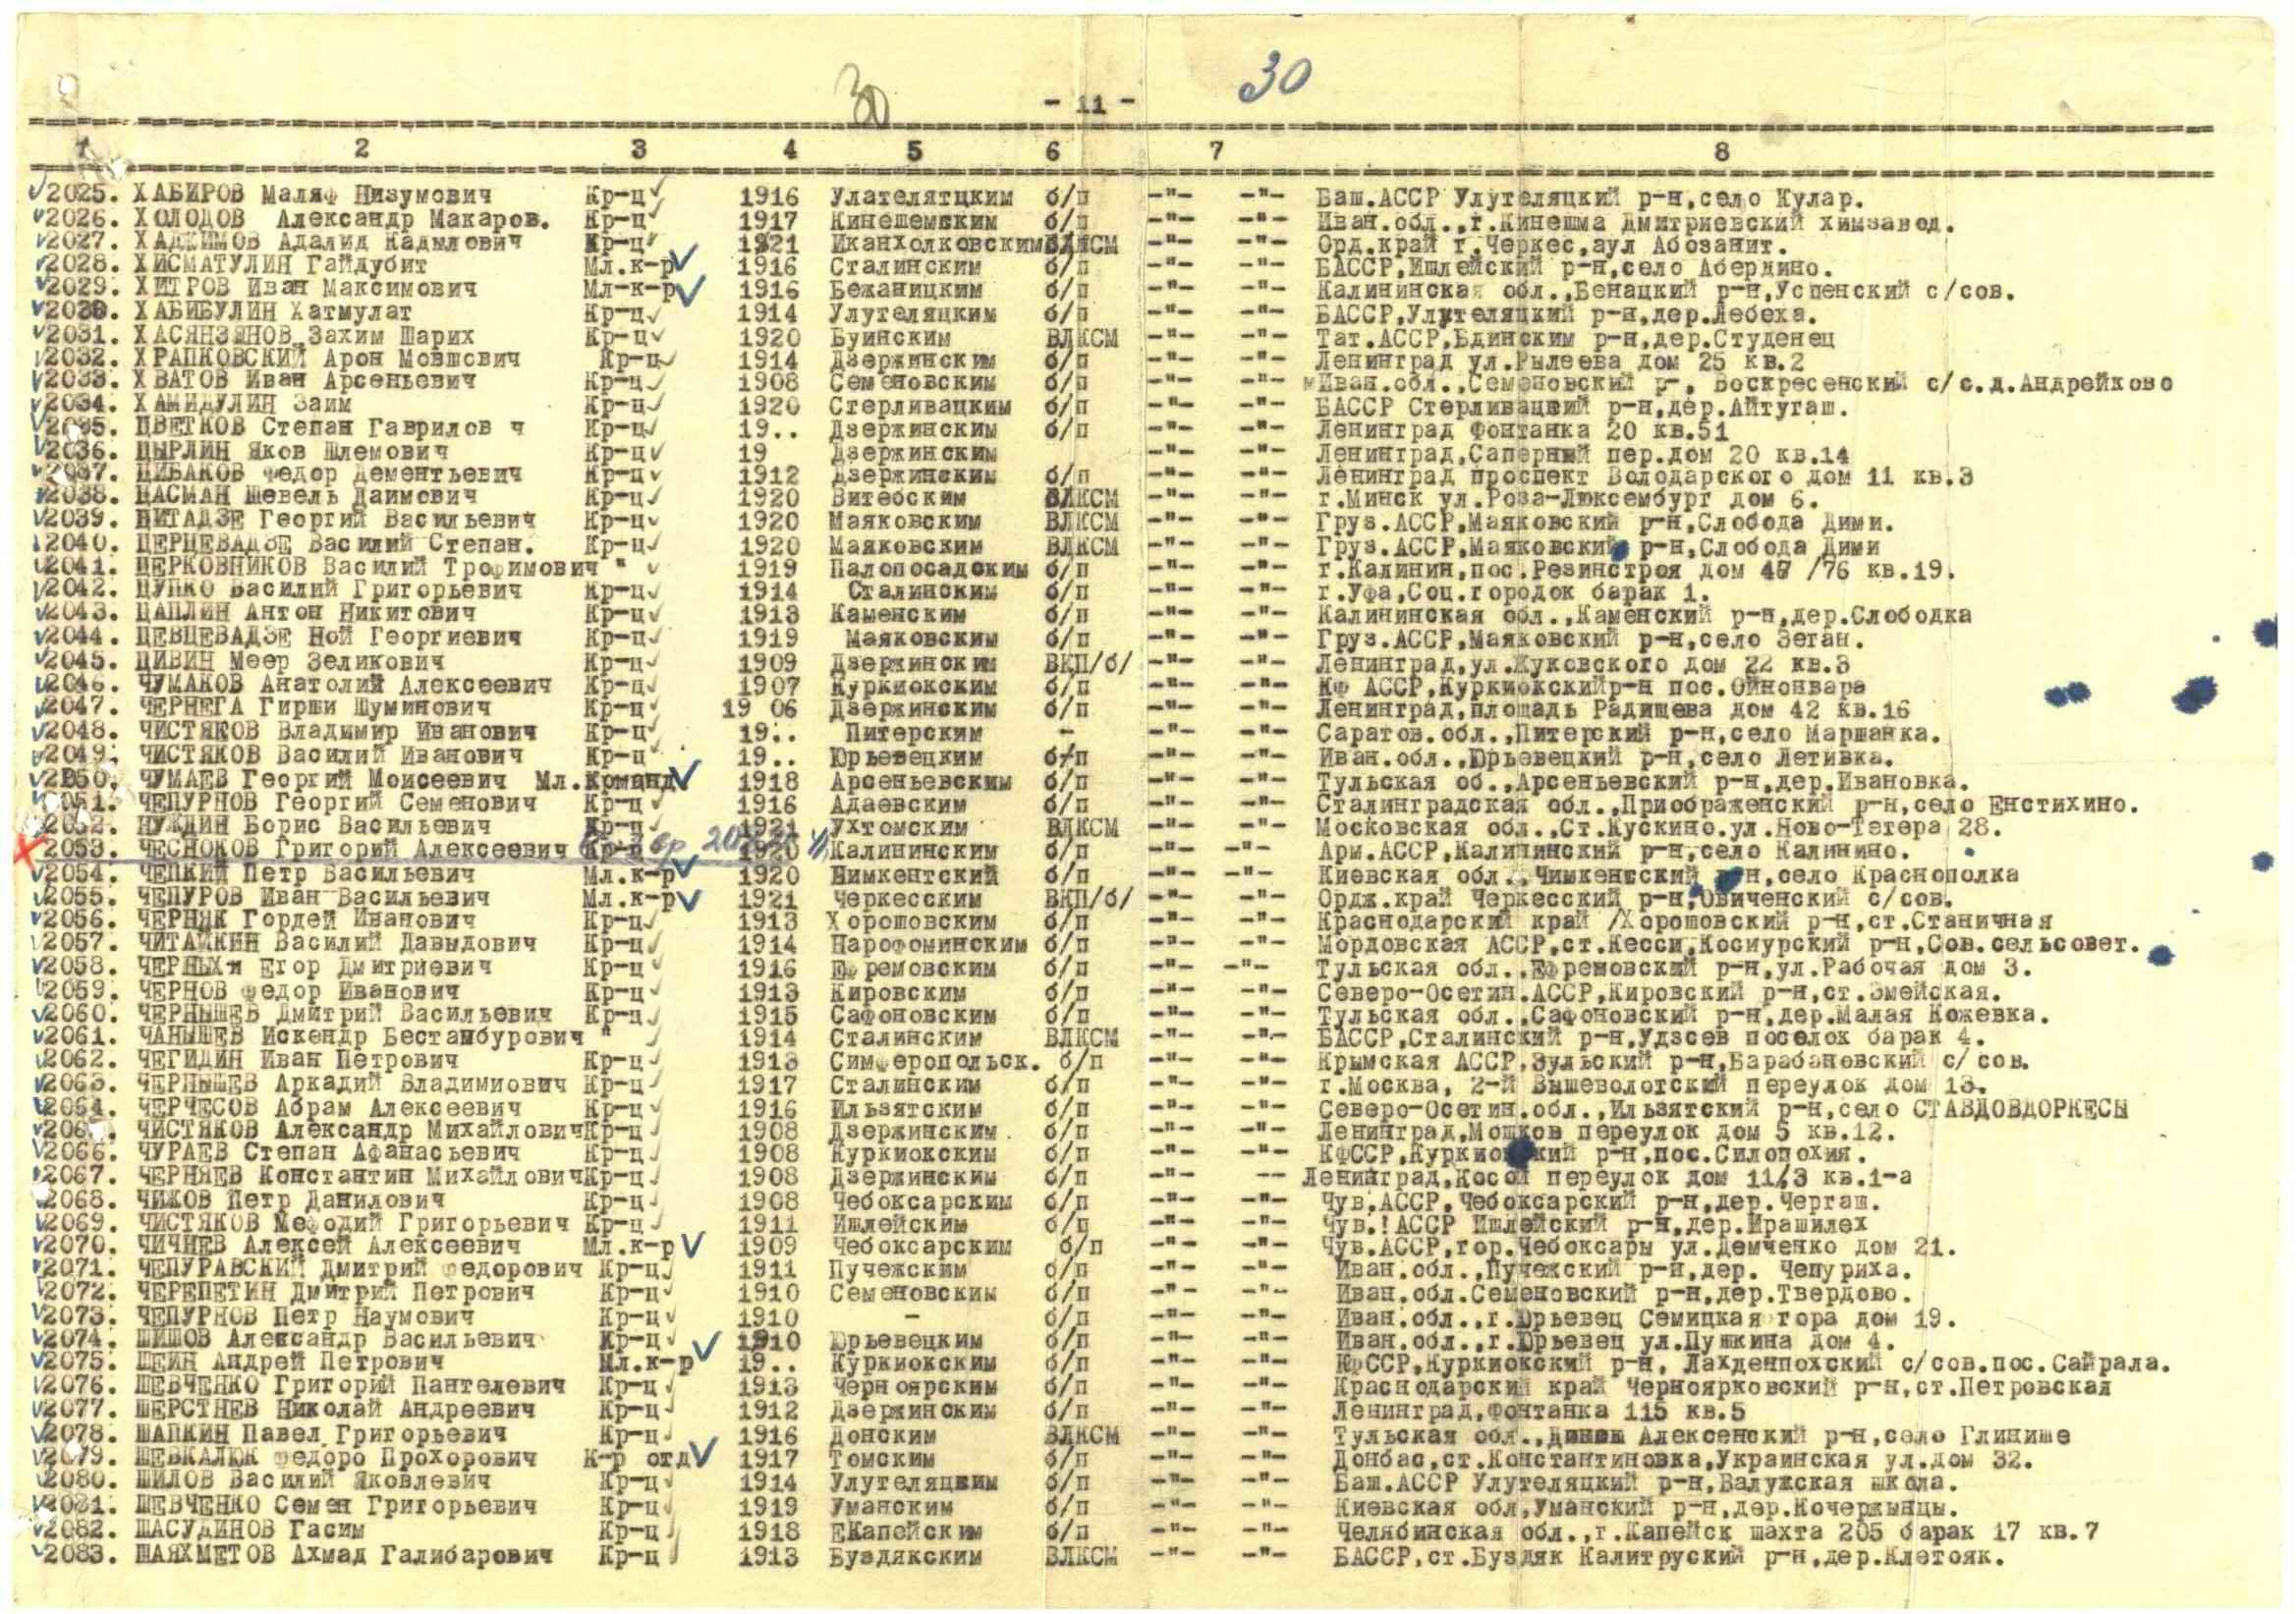 30 - 11 - 30
1 2 3 4 5 6 7 8
2025. ХАБИРОВ Маляф Низумович Кр-ц 1916 Улателятцким б/п -"- -"- Баш.АССР Улутеляцкий р-н,село Кулар.
2026. ХОЛОДОВ Александр Макаров. Кр-ц 1917 Кинешемским б/п -"- -"- Иван.обл.,г.Кинешма Дмитриевский химзавод.
2027. ХАДЖИМОВ Адалид Кадылович Кр-ц 1921 Иканхолковским ВЛКСМ -"- -"- Орд.край г.Черкес,аул Абозанит.
2028. ХИСМАТУЛИН Гайдубит Мл.к-р 1916 Сталинским б/п -"- -"- БАССР,Ишлейский р-н,село Абердино.
2029. ХИТРОВ Иван Максимович Мл-к-р 1916 Бежаницким б/п -"- -"- Калининская обл.,Бенацкий р-н,Успенский с/сов.
2030. ХАБИБУЛИН Хатмулат Кр-ц 1914 Улутеляцким б/п -"- -"- БАССР,Улутеляцкий р-н,дер.Лебеха.
2031. ХАСЯНЗЯНОВ Захим Шарих Кр-ц 1920 Буинским ВЛКСМ -"- -"- Тат.АССР,Бдинским р-н,дер.Студенец
2032. ХРАПКОВСКИЙ Арон Мовшович Кр-ц 1914 Дзержинским б/п -"- -"- Ленинград ул.Рылеева дом 25 кв.2
2033. ХВАТОВ Иван Арсеньевич Кр-ц 1908 Семеновским б/п -"- -"- Иван.обл.,Семеновский р-, Воскресенский с/с.д.Андрейково
2034. ХАМИДУЛИН Заим Кр-ц 1920 Стерливацким б/п -"- -"- БАССР Стерливацкий р-н,дер.Айтугаш.
2035. ЦВЕТКОВ Степан Гаврилов ч Кр-ц 19.. Дзержинским б/п -"- -"- Ленинград Фонтанка 20 кв.51
2036. ЦЫРЛИН Яков Шлемович Кр-ц 19 Дзержинским -"- -"- Ленинград,Саперный пер.дом 20 кв.14
2037. ЦИБАКОВ Федор Дементьевич Кр-ц 1912 Дзержинским б/п -"- -"- Ленинград проспект Володарского дом 11 кв.3
2038. ЦАСМАН Шевель Даимович Кр-ц 1920 Витебским ВЛКСМ -"- -"- г.Минск ул.Роза-Люксембург дом 6.
2039. ЦИТАДЗЕ Георгий Васильевич Кр-ц 1920 Маяковским ВЛКСМ -"- -"- Груз.АССР,Маяковский р-н,Слобода Дими.
2040. ЦЕРЦЕВАДЗЕ Василий Степан. Кр-ц 1920 Маяковским ВЛКСМ -"- -"- Груз.АССР,Маяковский р-н,Слобода Дими
2041. ЦЕРКОВНИКОВ Василий Трофимович " 1919 Палопосадским б/п -"- -"- г.Калинин,пос.Резинстроя дом 47 /76 кв.19.
2042. ЦУПКО Василий Григорьевич Кр-ц 1914 Сталинским б/п -"- -"- г.Уфа,Соц.городок барак 1.
2043. ЦАПЛИН Антон Никитович Кр-ц 1913 Каменским б/п -"- -"- Калининская обл.,Каменский р-н,дер.Слободка
2044. ЦЕВЦЕВАДЗЕ Ной Георгиевич Кр-ц 1919 Маяковским б/п -"- -"- Груз.АССР,Маяковский р-н,село Зеган.
2045. ЦИВИН Меер Зеликович Кр-ц 1909 Дзержинским ВКП/б/ -"- -"- Ленинград,ул.Жуковского дом 22 кв.3
2046. ЧУМАКОВ Анатолий Алексеевич Кр-ц 1907 Куркиокским б/п -"- -"- КФ АССР,Куркиокскийр-н пос.Ойнонвара
2047. ЧЕРНЕГА Гирши Шуминович Кр-ц 19 06 Дзержинским б/п -"- -"- Ленинград,площадь Радищева дом 42 кв.16
2048. ЧИСТЯКОВ Владимир Иванович Кр-ц 19.. Питерским - -"- -"- Саратов.обл.,Питерский р-н,село Маршанка.
2049. ЧИСТЯКОВ Василий Иванович Кр-ц 19.. Юрьевецким б/п -"- -"- Иван.обл.,Юрьевецкий р-н,село Летивка.
2050. ЧУМАЕВ Георгий Моисеевич Мл.Команд 1918 Арсеньевским б/п -"- -"- Тульская об.,Арсеньевский р-н,дер.Ивановка.
2051. ЧЕПУРНОВ Георгий Семенович Кр-ц 1916 Адаевским б/п -"- -"- Сталинградская обл.,Приображенский р-н,село Енстихино.
2052. НУЖДИН Борис Васильевич Кр-ц 1921 Ухтомским ВЛКСМ -"- -"- Московская обл.,Ст.Кускино.ул.Ново-Тетера 28.
2053. ЧЕСНОКОВ Григорий Алексеевич Кр-ц 1920 Калининским б/п -"- -"- Арм.АССР,Калининский р-н,село Калинино.
2054. ЧЕПКИЙ Петр Васильевич Мл.к-р 1920 Нимкентский б/п -"- -"- Киевская обл.,Чимкентский р-н,село Краснополка
2055. ЧЕПУРОВ Иван Васильевич Мл.к-р 1921 Черкесским ВКП/б/ -"- -"- Ордж.край Черкесский р-н,Овиченский с/сов.
2056. ЧЕРНЯК Гордей Иванович Кр-ц 1913 Хорошовским б/п -"- -"- Краснодарский край /Хорошовский р-н,ст.Станичная
2057. ЧИТАЙКИН Василий Давыдович Кр-ц 1914 Нарофоминским б/п -"- -"- Мордовская АССР,ст.Кесси,Косиурский р-н,Сов.сельсовет.
2058. ЧЕРНЫХ Егор Дмитриевич Кр-ц 1916 Ефремовским б/п -"- -"- Тульская обл.,Ефремовский р-н,ул.Рабочая дом 3.
2059. ЧЕРНОВ Федор Иванович Кр-ц 1913 Кировским б/п -"- -"- Северо-Осетин.АССР,Кировский р-н,ст.Змейская.
2060. ЧЕРНЫШЕВ Дмитрий Васильевич Кр-ц 1915 Сафоновским б/п -"- -"- Тульская обл.,Сафоновский р-н,дер.Малая Кожевка.
2061. ЧАНЫШЕВ Искендр Бестамбурович " 1914 Сталинским ВЛКСМ -"- -"- БАССР,Сталинский р-н,Удзсев поселок барак 4.
2062. ЧЕГИДИН Иван Петрович Кр-ц 1913 Симферопольск. б/п -"- -"- Крымская АССР,Зульский р-н,Барабановский с/сов.
2063. ЧЕРНЫШЕВ Аркадий Владимиович Кр-ц 1917 Сталинским б/п -"- -"- г.Москва, 2-й Вышеволотский переулок дом 13.
2064. ЧЕРЧЕСОВ Абрам Алексеевич Кр-ц 1916 Ильзятским б/п -"- -"- Северо-Осетин.обл.,Ильзятский р-н,село СТАВДОВДОРКЕСЫ
2065. ЧИСТЯКОВ Александр Михайлович Кр-ц 1908 Дзержинским б/п -"- -"- Ленинград,Мошков переулок дом 5 кв.12.
2066. ЧУРАЕВ Степан Афанасьевич Кр-ц 1908 Куркиокским б/п -"- -"- КФССР,Куркиокский р-н,пос.Силопохия.
2067. ЧЕРНЯЕВ Константин Михайлович Кр-ц 1908 Дзержинским б/п -"- -- Ленинград,Косой переулок дом 11/3 кв.1-а
2068. ЧИЖОВ Петр Данилович Кр-ц 1908 Чебоксарским б/п -"- -"- Чув.АССР,Чебоксарский р-н,дер.Чергаш.
2069. ЧИСТЯКОВ Мефодий Григорьевич Кр-ц 1911 Ишлейским б/п -"- -"- Чув.!АССР Ишлейский р-н,дер.Ирашилех
2070. ЧИЧНЕВ Алексей Алексеевич Мл.к-р 1909 Чебоксарским б/п -"- -"- Чув.АССР,гор.Чебоксары ул.Демченко дом 21.
2071. ЧЕПУРАВСКИЙ Дмитрий Федорович Кр-ц 1911 Пучежским б/п -"- -"- Иван.обл.,Пучежский р-н,дер. Чепуриха.
2072. ЧЕРЕПЕТИН Дмитрий Петрович Кр-ц 1910 Семеновским б/п -"- -"- Иван.обл.Семеновский р-н,дер.Твердово.
2073. ЧЕПУРНОВ Петр Наумович Кр-ц 1910 - б/п -"- -"- Иван.обл.,г.Юрьевец Семицкая гора дом 19.
2074. ШИШОВ Александр Васильевич Кр-ц 1910 Юрьевецким б/п -"- -"- Иван.обл.,г.Юрьевец ул.Пушкина дом 4.
2075. ШЕИН Андрей Петрович Мл.к-р 19.. Куркиокским б/п -"- -"- КФССР,Куркиокский р-н, Лахденпохский с/сов.пос.Сайрала.
2076. ШЕВЧЕНКО Григорий Пантелевич Кр-ц 1913 Черноярским б/п -"- -"- Краснодарский край Черноярковский р-н,ст.Петровская
2077. ШЕРСТНЕВ Николай Андреевич Кр-ц 1912 Дзержинским б/п -"- -"- Ленинград,Фонтанка 115 кв.5
2078. ШАПКИН Павел Григорьевич Кр-ц 1916 Донским ВЛКСМ -"- -"- Тульская обл., Алексенский р-н,село Глинище
2079. ШЕВКАЛЮК Федоро Прохорович К-р отд 1917 Томским б/п -"- -"- Донбас,ст.Константиновка,Украинская ул.дом 32.
2080. ШИЛОВ Василий Яковлевич Кр-ц 1914 Улутеляцким б/п -"- -"- Баш.АССР Улутеляцкий р-н,Валужская школа.
2081. ШЕВЧЕНКО Семен Григорьевич Кр-ц 1919 Уманским б/п -"- -"- Киевская обл,Уманский р-н,дер.Кочержынцы.
2082. ШАСУДИНОВ Гасим Кр-ц 1918 ЕКапейским б/п -"- -"- Челябинская обл.,г.Капейск шахта 205 барак 17 кв.7
2083. ШАЯХМЕТОВ Ахмад Галибарович Кр-ц 1913 Буздякским ВЛКСМ -"- -"- БАССР,ст.Буздяк Калитруский р-н,дер.Клетояк.